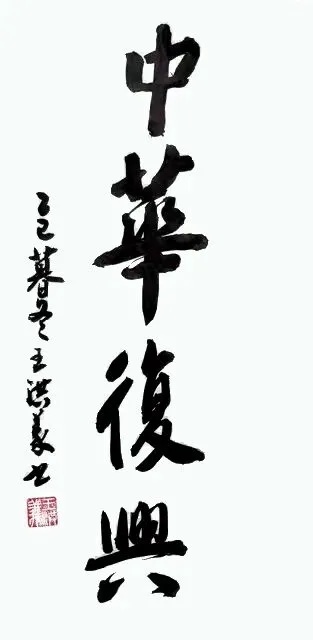 中華復興
乙巳暮冬王洪義书